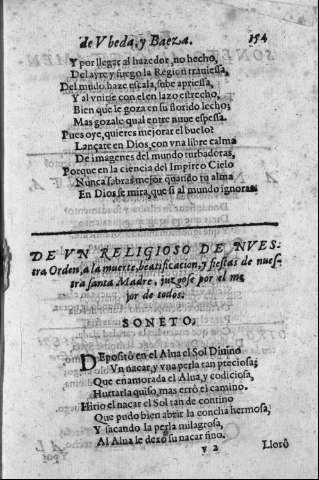 de Vbeda, y Baeza. 154
Y por llegar al hazedor, no hecho,
Del ayre y fuego la Region trauiessa,
Del mũdo haze escala, sube apriessa,
Y al vnirse con el en lazo estrecho,
Bien que le goza en su florido lecho;
Mas gozale qual entre nuue espessa.
Pues oye, quieres mejorar el buelo?
Lançate en Dios, con vna libre calma
De imagenes del mundo turbadoras,
Porque en la ciencia del Impireo Cielo
Nunca sabras mejor quando tu alma
En Dios se mira, que si al mundo ignoras.
DE VN RELIGIOSO DE NVES-
tra Orden, a la muerte, beatificacion, y fiestas de nues-
tra santa Madre, juzgose por el me
jor de todos.
SONETO.
DEpositò en el Alua el Sol Diuino
Vn nacar, y vna perla tan preciosa;
Que enamorada el Alua, y codiciosa,
Hurtarla quiso, mas errò el camino.
Hirio el nacar el Sol tan de contino
Que pudo bien abrir la concha hermosa,
Y sacando la perla milagrosa,
Al Alua le dexò su nacar fino.
y 2 Llorò